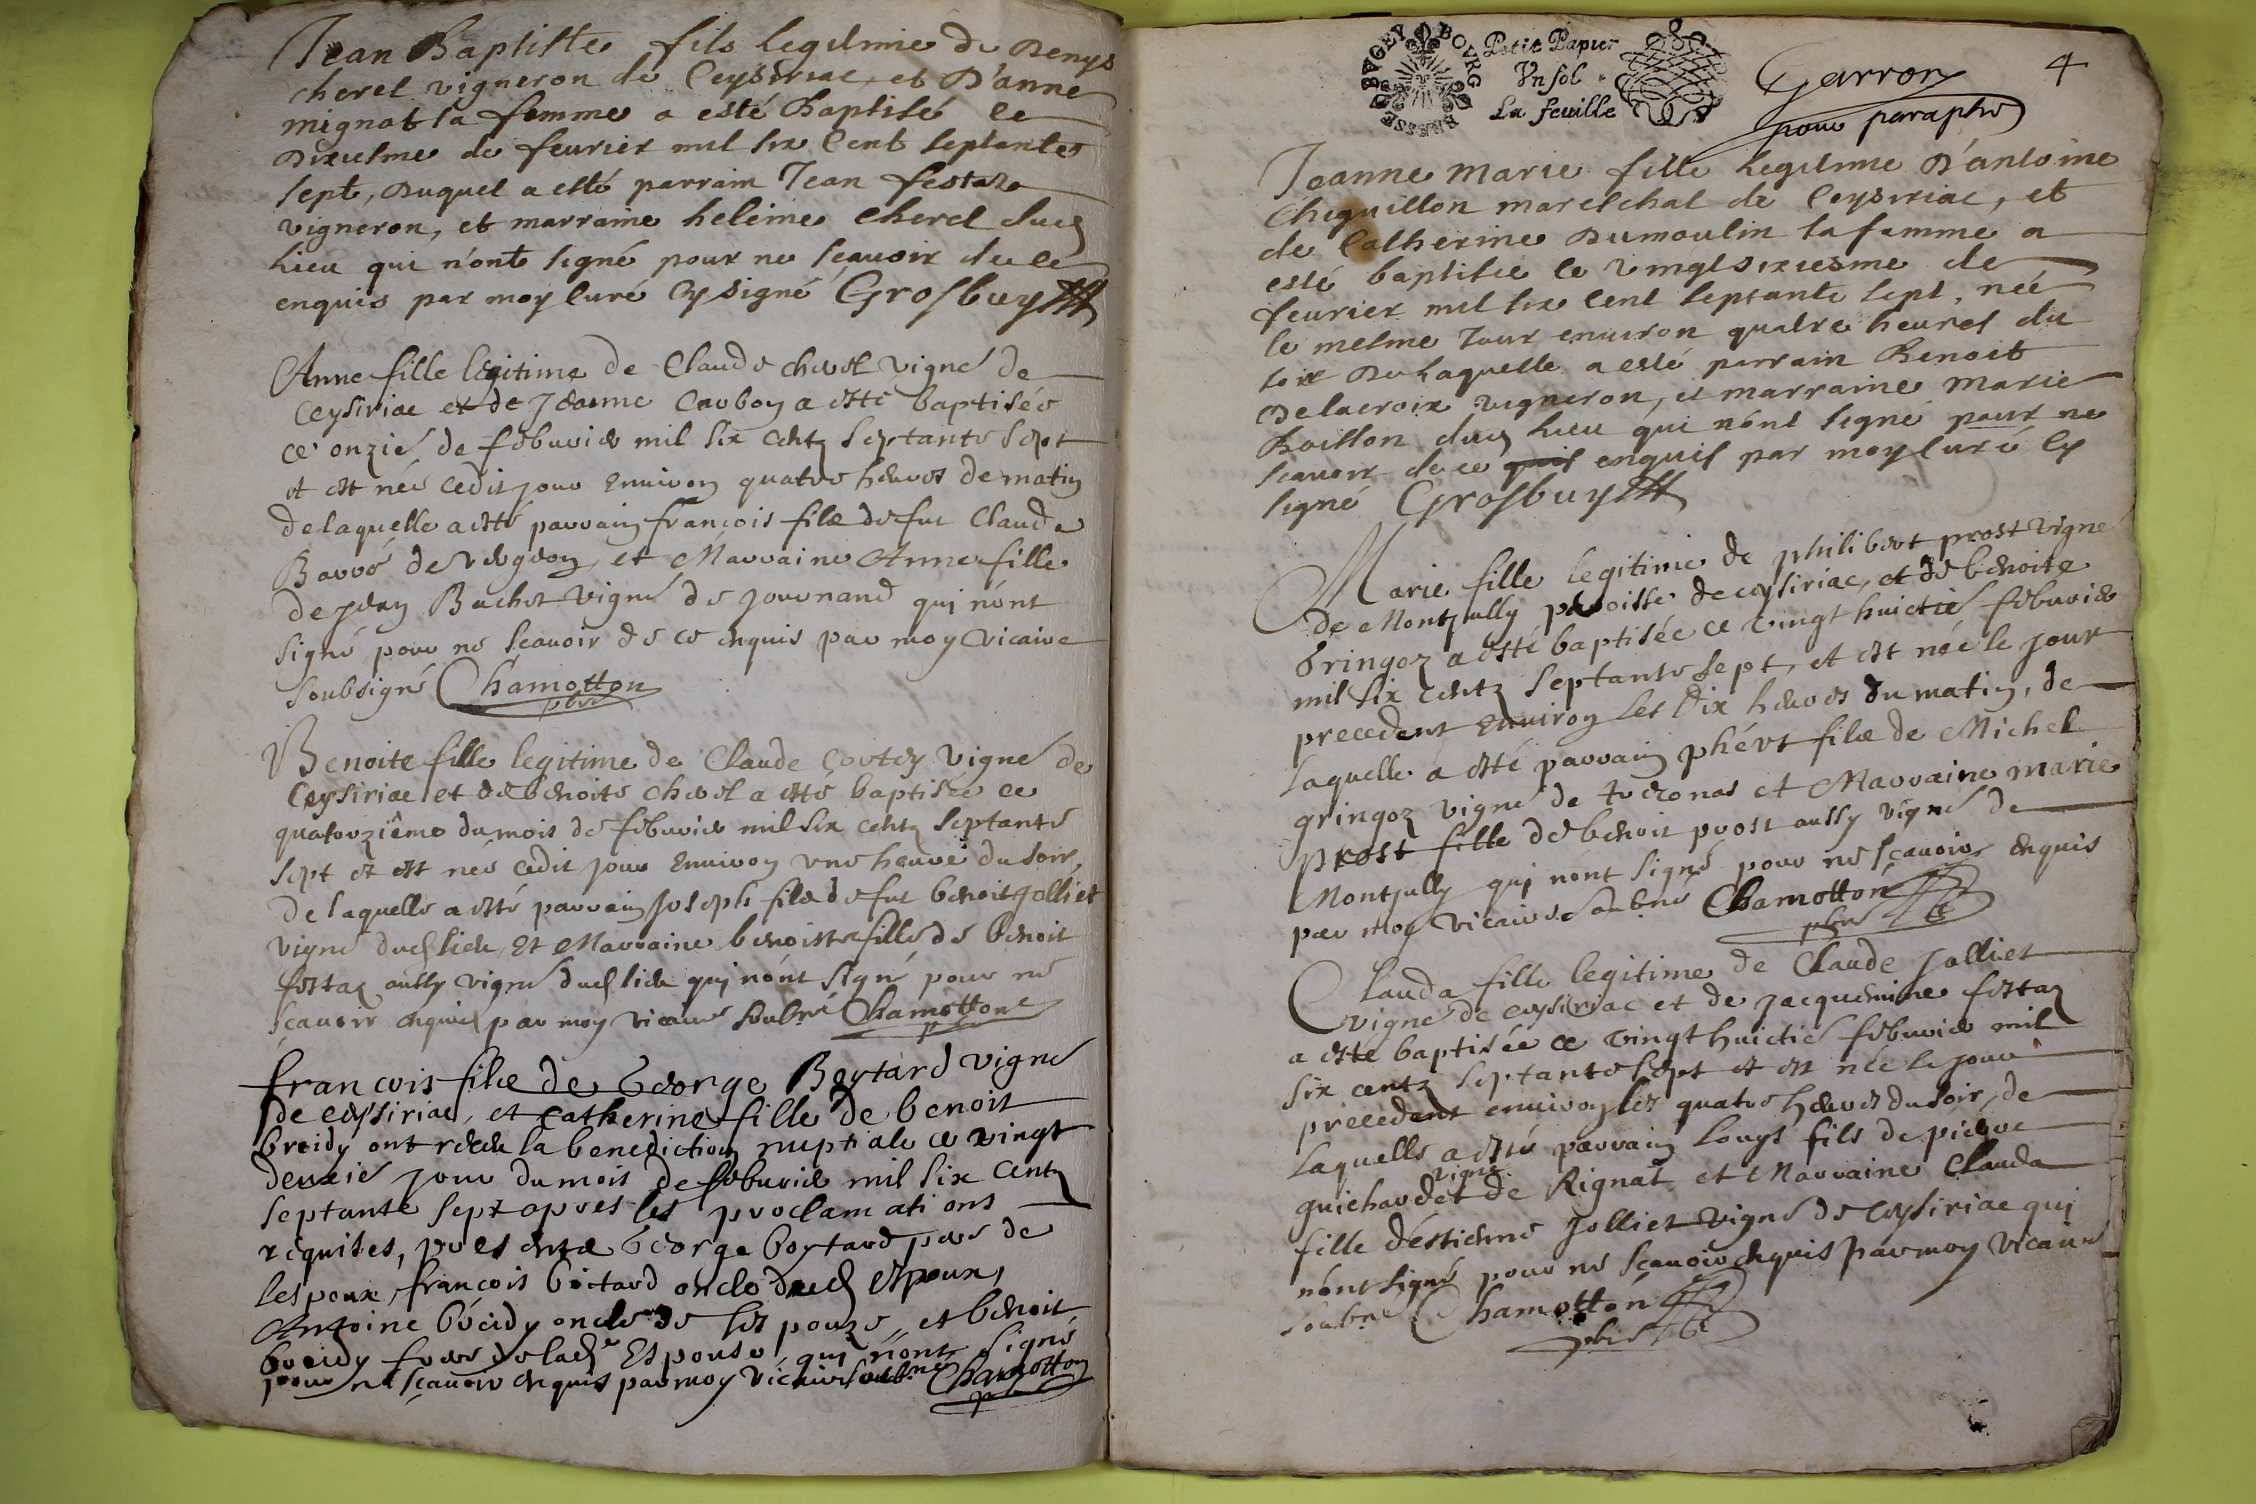 Jean Baptiste fils legitime de Denys
cherel vigneron de Ceysiriac, et D'anne
mignat sa femme a esté Baptisé le
Dixiesme de feurier mil six Cent septantes
sept, Duquel a esté parrain Jean festaz
vigneron, et marraine heleine Cherel dud
Lieu qui n'ont signé pour ne sçauoir de ce
enquis par moy Curé Cy signé Grosbuy
Anne fille legitime de Claude cherel vigne de
Ceysiriac et de Jeanne Carbon a esté baptisée
ce onzie de feburier mil six centz septante sept
et est née cedit jour enuiron quatre heures de matin
de laquelle a esté parrain françois filz de fut Claude
Barré de et Marraine Anne fille
de jean Buchet vigne de journand qui nont
signé pour ne sçauoir de ce enquis par moy vicaire
soubsigné Chamotton
pbre
Benoite fille legitime de Claude Cortey vigne de
Ceysiriac et de benoite cherel a esté baptisée ce
quatorziême du mois de feburier mil six centz septante
sept et est née cedit jour enuiron vne heure du soir,
de laquelle a esté parrain Joseph filz de fut benoit Jolliet
vigne dud lieu, et Marraine benoiste fille de benoit
festaz aussy vigne dud lieu qui nont signé pour ne
sçauoir enquis par moy vicaire soubne Chamotton
françois filz de George Boytard vigne
de ceysiriac, et Catherine fille de benoit
breidy ont receu la benediction nuptiale ce vingt
deuxie jour du mois de feburier mil six centz
septante sept apres les proclamations
requises, presentz George boytard pere de
lespoux, françois boitard oncle dud espoux,
Antoine breidy oncle de lespouze, et benoit
breidy frere de lad Espouse qui n'ont signé
pour ne sçauoir enquis par moy vicaire soubne Chamotton
BRESSE BVGEY BOVRG
Petit Papier
Vn sol
La feuille
Garron
pour paraphe
4
Jeanne Marie fille legitime D'antoine
Cheguillon mareschal de Ceysiriac, et
de Catherine Dumoulin sa femme a
esté baptisée le vingtsixiesme de
feurier mil six Cent septante sept, née
le mesme Jour enuiron quatre heures du
soir De Laquelle a esté parrain Benoit
Delacroix vigneron, et marraine Marie
Boillon dud Lieu qui nont signé pour ne
sçauoir de ce enquis par moy Curé Cy
signé Grosbuy
Marie fille legitime de philibert prost vigne
de Montjully paroisse de ceysiriac, et de benoite
Gringoz a esté baptisée ce vingt huictie feburier
mil six centz septante sept, et est née le jour
precedent enuiron les Dix heures du matin, de
laquelle a esté parrain phért filz de Michel
gringoz vigne de treconas et Marraine marie
prost fille de benoit prost aussy vigne de
Montjully qui nont signé pour ne sçauoir enquis
par moy vicaire soubné Chamotton
pbre
Clauda fille legitime de Claude Jolliet
vigne de ceysiriac et de jacquemine festaz
a esté baptisée ce vingt huictie feburier mil
six centz septante sept et est née le jour
precedent enuiron les quatre heures du soir, de
laquelle a esté parrain Louys fils de pierre
vigne
guichardet de Rignat et Marraine Clauda
fille déstienne Jolliet vigne de ceysiriac qui
nont signé pour ne sçauoir enquis par moy vicaire
soubne Chamotton
pbre